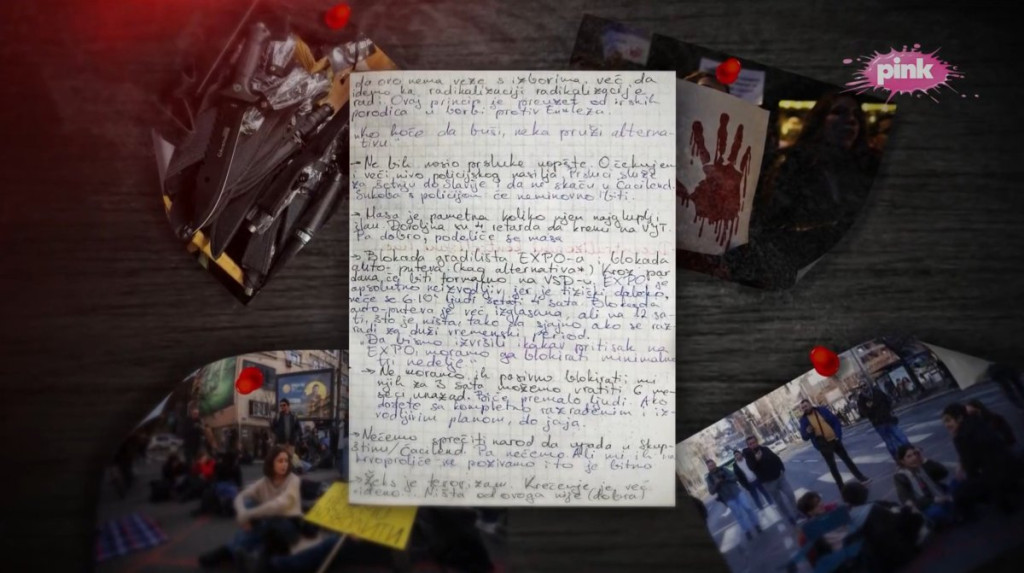 pink
da ovo nema veze s izborima, več da
idemo ka radikalizaciji radikalizacije
radi. Ovaj princip je preuzet od irskih
porodica u borbi protiv Engleza.
"Ko hoče da buši, neka pruži alterna-
tivu."
→ Ne bih nosio prsluke uopšte. Očekujem
i veči nivo policijskog nasilja. Prsluci služe
za šetnju do Slavije i da ne skaču u Cacilend.
Sukoba s policijom če neminovno biti.
→ Masa je pametna koliko njen najgluplji
član. Dovoljna su 4 retarda da krenu na VJT.
Pa dobro, podeliće se masa
→ Blokada gradilišta EXPO-a i blokada
auto-puteva (kao alternativa*) kroz par
dana če biti formalno na VSD-u. EXPO je
apsolutno neizvodljiv jer je fizički daleko,
neće se 6·10⁴ ljudi šetati 4 sata. Blokada
auto-puteva je več izglasana, ali na 12 sa-
ti, što je ništa, tako da sjajno, ako se raz-
radi za duži vremenski period.
"Da bismo izvršili ikakav pritisak na
EXPO, moramo ga blokirati minimalno
tri nedelje"
→ Ne moramo ih pasivno blokirati; mi
njih za 3 sata možemo vratiti 6 me-
seci unazad. Biće premalo ljudi. Ako
dođete sa kompletno razrađenim i iz-
vodljivim planom, do jaja.
→ Nečemo sprečiti narod da upada u Skup-
štinu/Cacilend. Pa nečemo. Ali mi ih
krvoproliće ne pozivamo i to je bitno
je terorizam. Krečenje je več
viđeno. Ništa od ovoga nije (dobra)